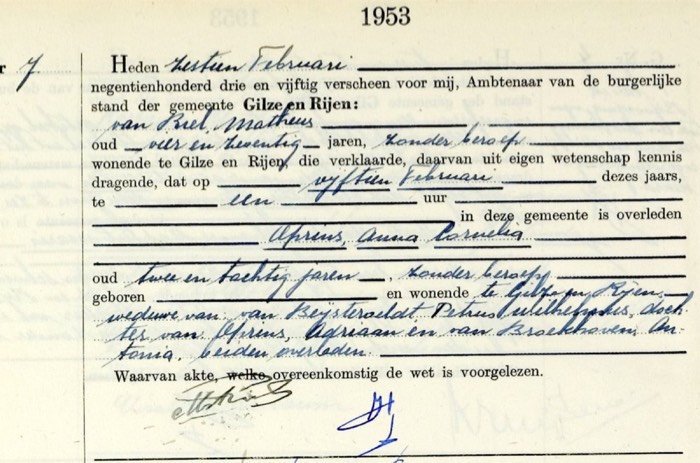 1953
r 7
Heden zestien Februari
negentienhonderd drie en vijftig verscheen voor mij, Ambtenaar van de burgerlijke
stand der gemeente Gilze en Rijen:
van Riel, Matheus
oud vier en zeventig jaren, zonder beroep
wonende te Gilze en Rijen, die verklaarde, daarvan uit eigen wetenschap kennis
dragende, dat op vijftien Februari dezes jaars,
te een uur
in deze gemeente is overleden
Oprens, Anna Cornelia
oud twee en tachtig jaren, zonder beroep
geboren en wonende te Gilze en Rijen,
weduwe van van Beijsterveldt Petrus Wilhelmus, doch-
ter van Oprens, Adriaan en van Broekhoven, An-
tonia, beiden overleden.
Waarvan akte, welke overeenkomstig de wet is voorgelezen.